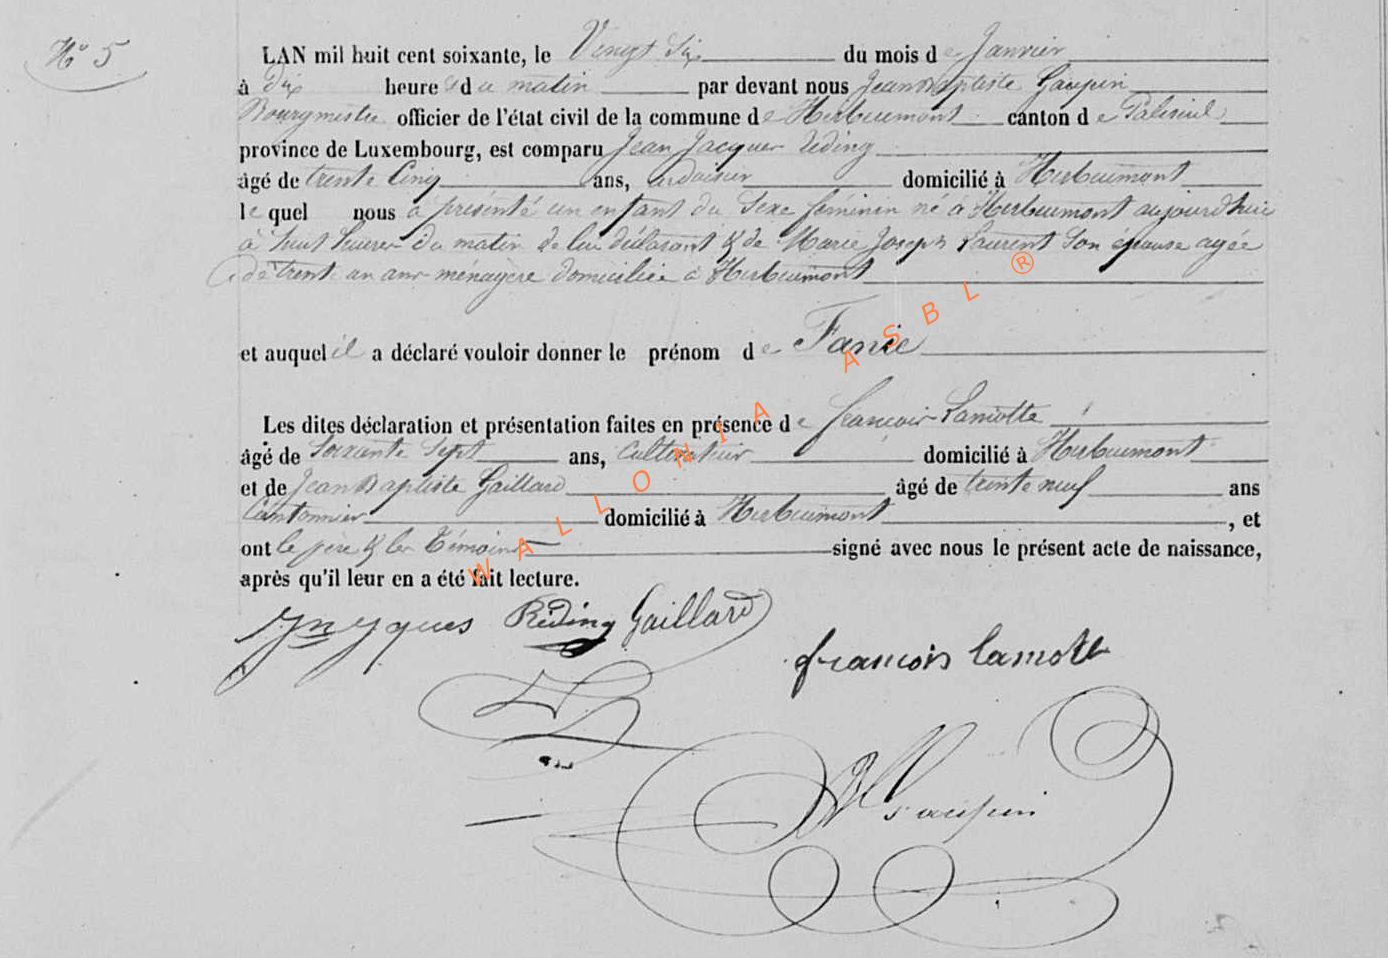 N° 5
LAN mil huit cent soixante, le Vingt Six du mois de Janvier
à Dix heures du matin par devant nous Jean Baptiste Gaupin
Bourgmestre officier de l'état civil de la commune de Herbeumont canton de Paliseul
province de Luxembourg, est comparu Jean Jacques Reding
âgé de trente Cinq ans, ardoisier domicilié à Herbeumont
le quel nous a présenté un enfant du Sexe féminin né à Herbeumont aujourd'hui
à huit heures du matin de lui déclarant & de Marie Joseph Laurent Son épouse agée
de trent un ans ménagère domiciliée à Herbeumont
et auquel il a déclaré vouloir donner le prénom de Fanie
Les dites déclaration et présentation faites en présence de françois Lamotte
âgé de Soixante Sept ans, Cultivateur domicilié à Herbeumont
et de Jean Baptiste Gaillard âgé de trente neuf ans
Cantonnier domicilié à Herbeumont, et
ont le père & les Témoins signé avec nous le présent acte de naissance,
après qu'il leur en a été fait lecture.
Reding Gaillard
francois lamotte
Gaupin
WALLONIA ASBL ®